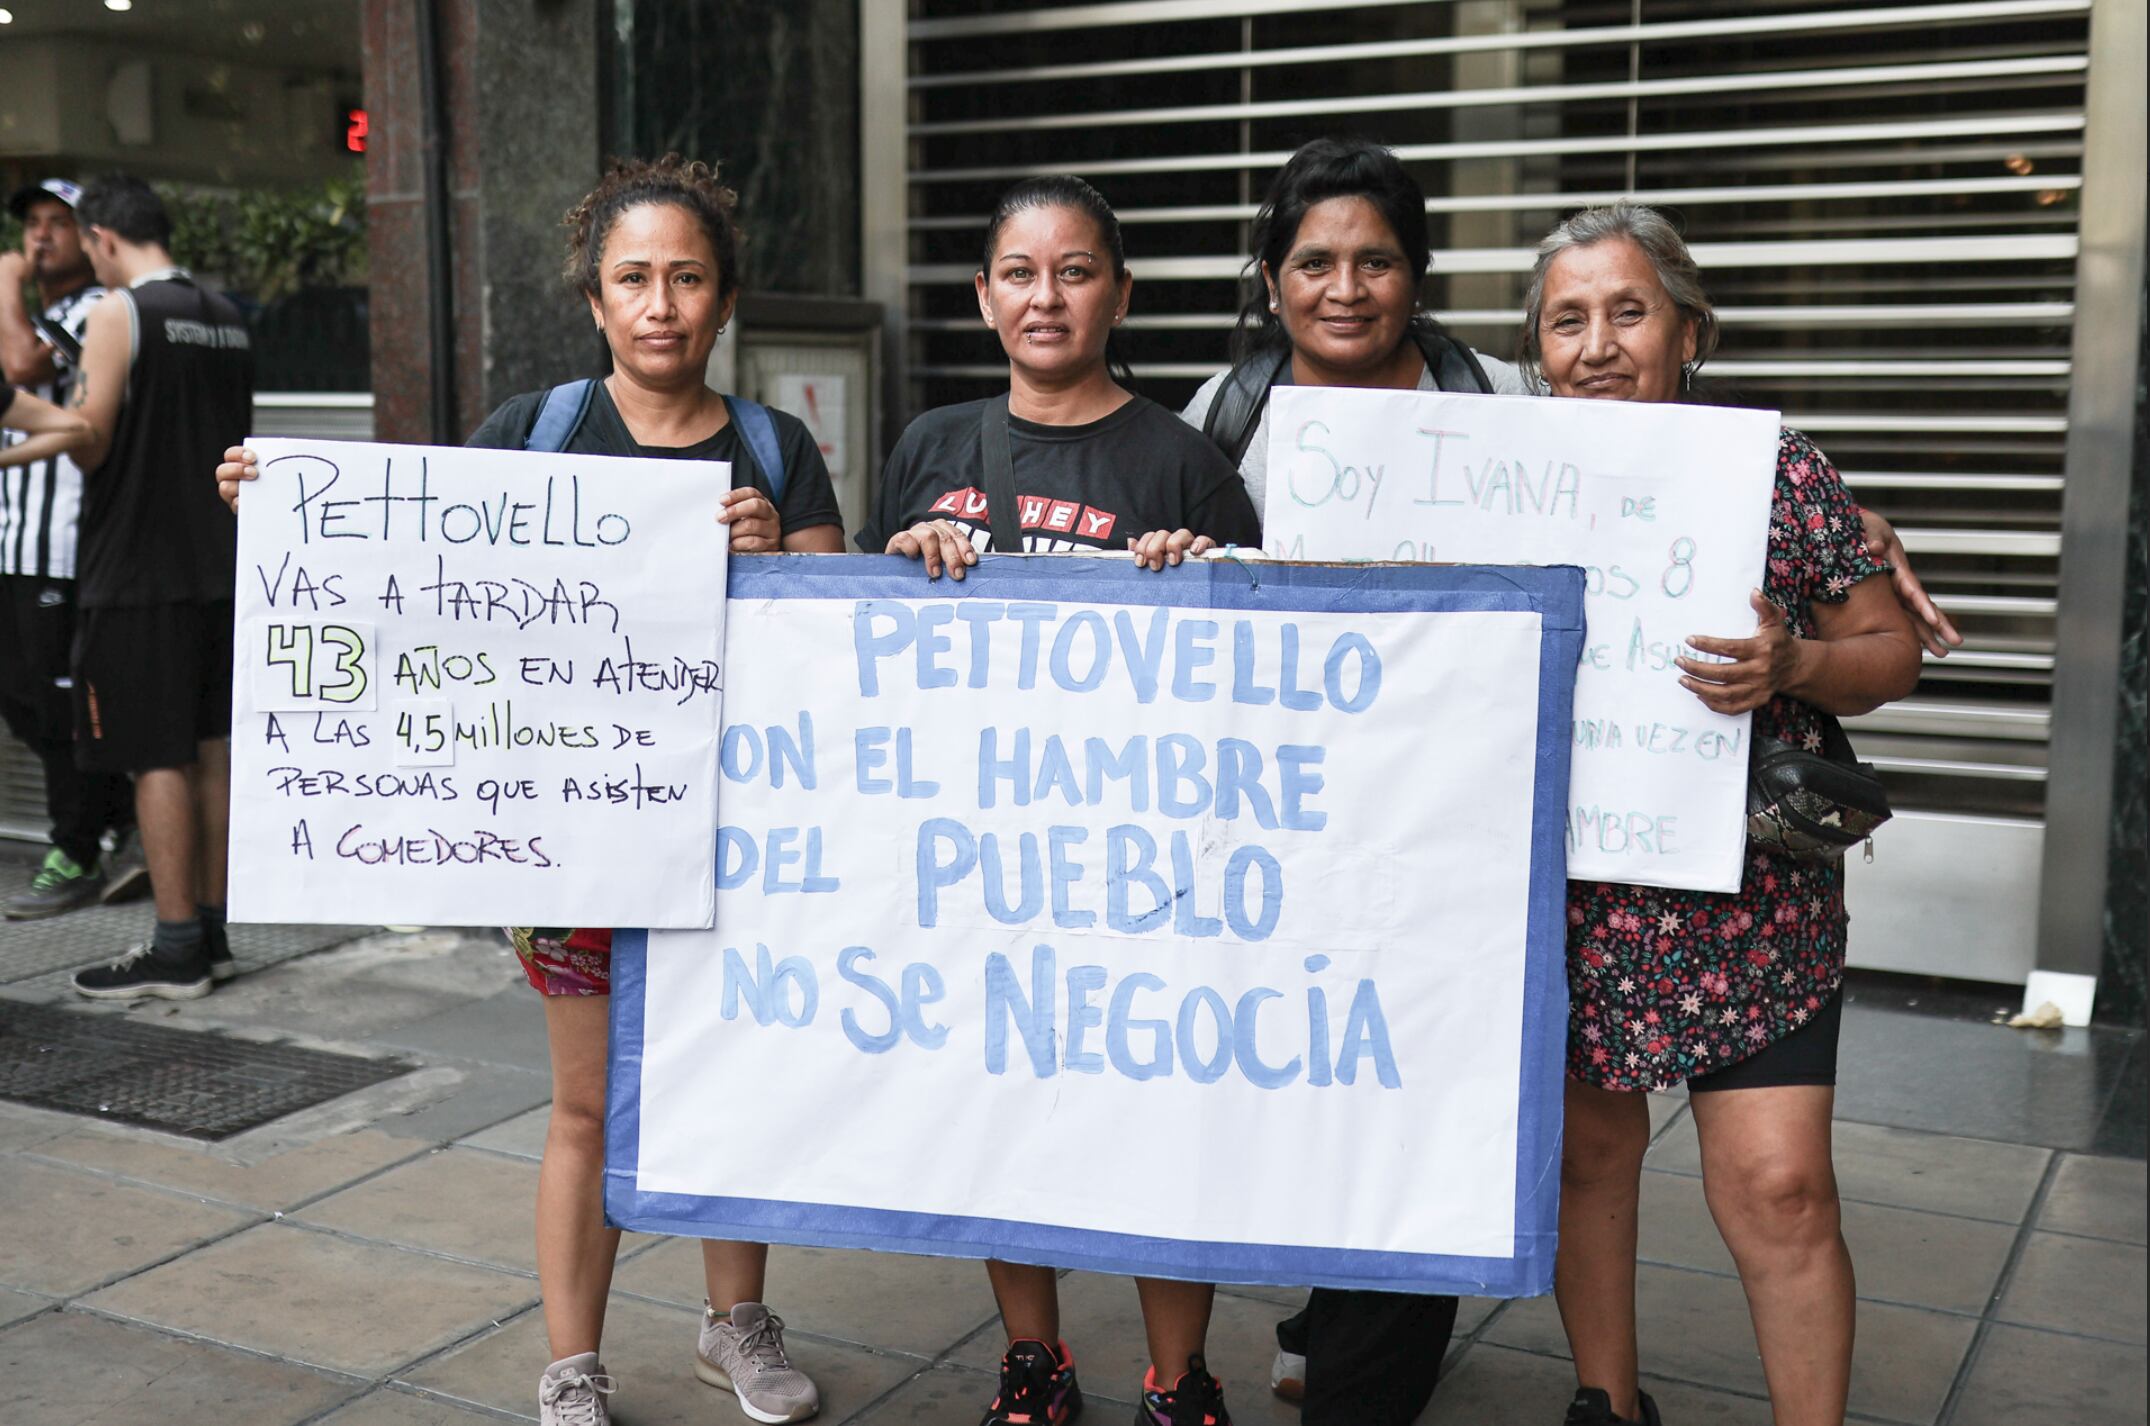 PETTOVELLO
VAS A TARDAR
43 AÑOS EN ATENDER
A LAS 4,5 MILLONES DE
PERSONAS QUE ASISTEN
A COMEDORES.
PETTOVELLO
ON EL HAMBRE
DEL PUEBLO
NO SE NEGOCIA
SOY IVANA, DE
OS 8
UE ASUM
UNA VEZ EN
AMBRE
LU HEY
2